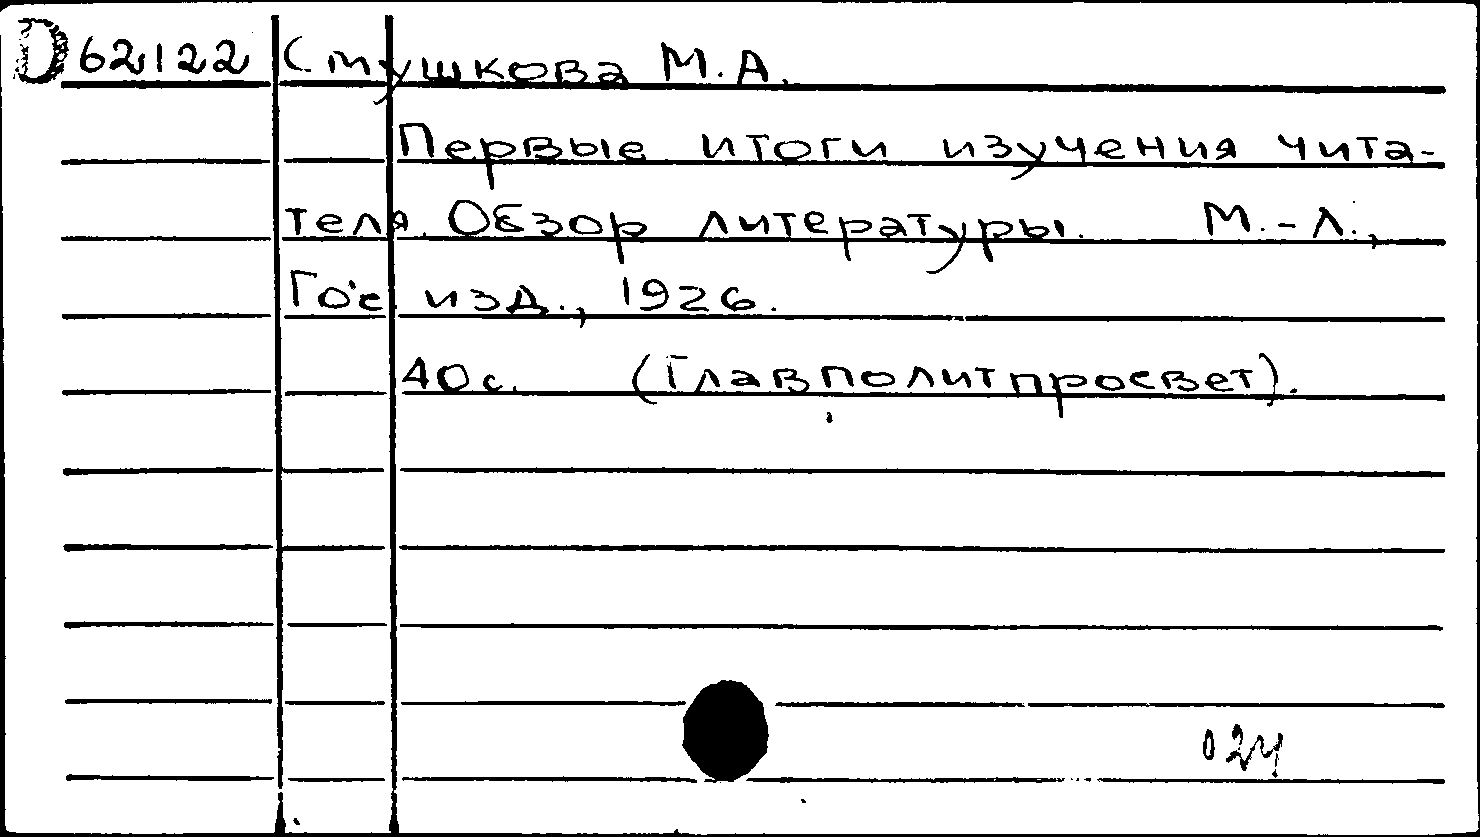 D 62122 Стушкова М.А.
Первые итоги изучения чита-
теля. Обзор литературы. М.-Л.,
Гос. изд., 1926.
40 с. (Главполитпросвет).
024